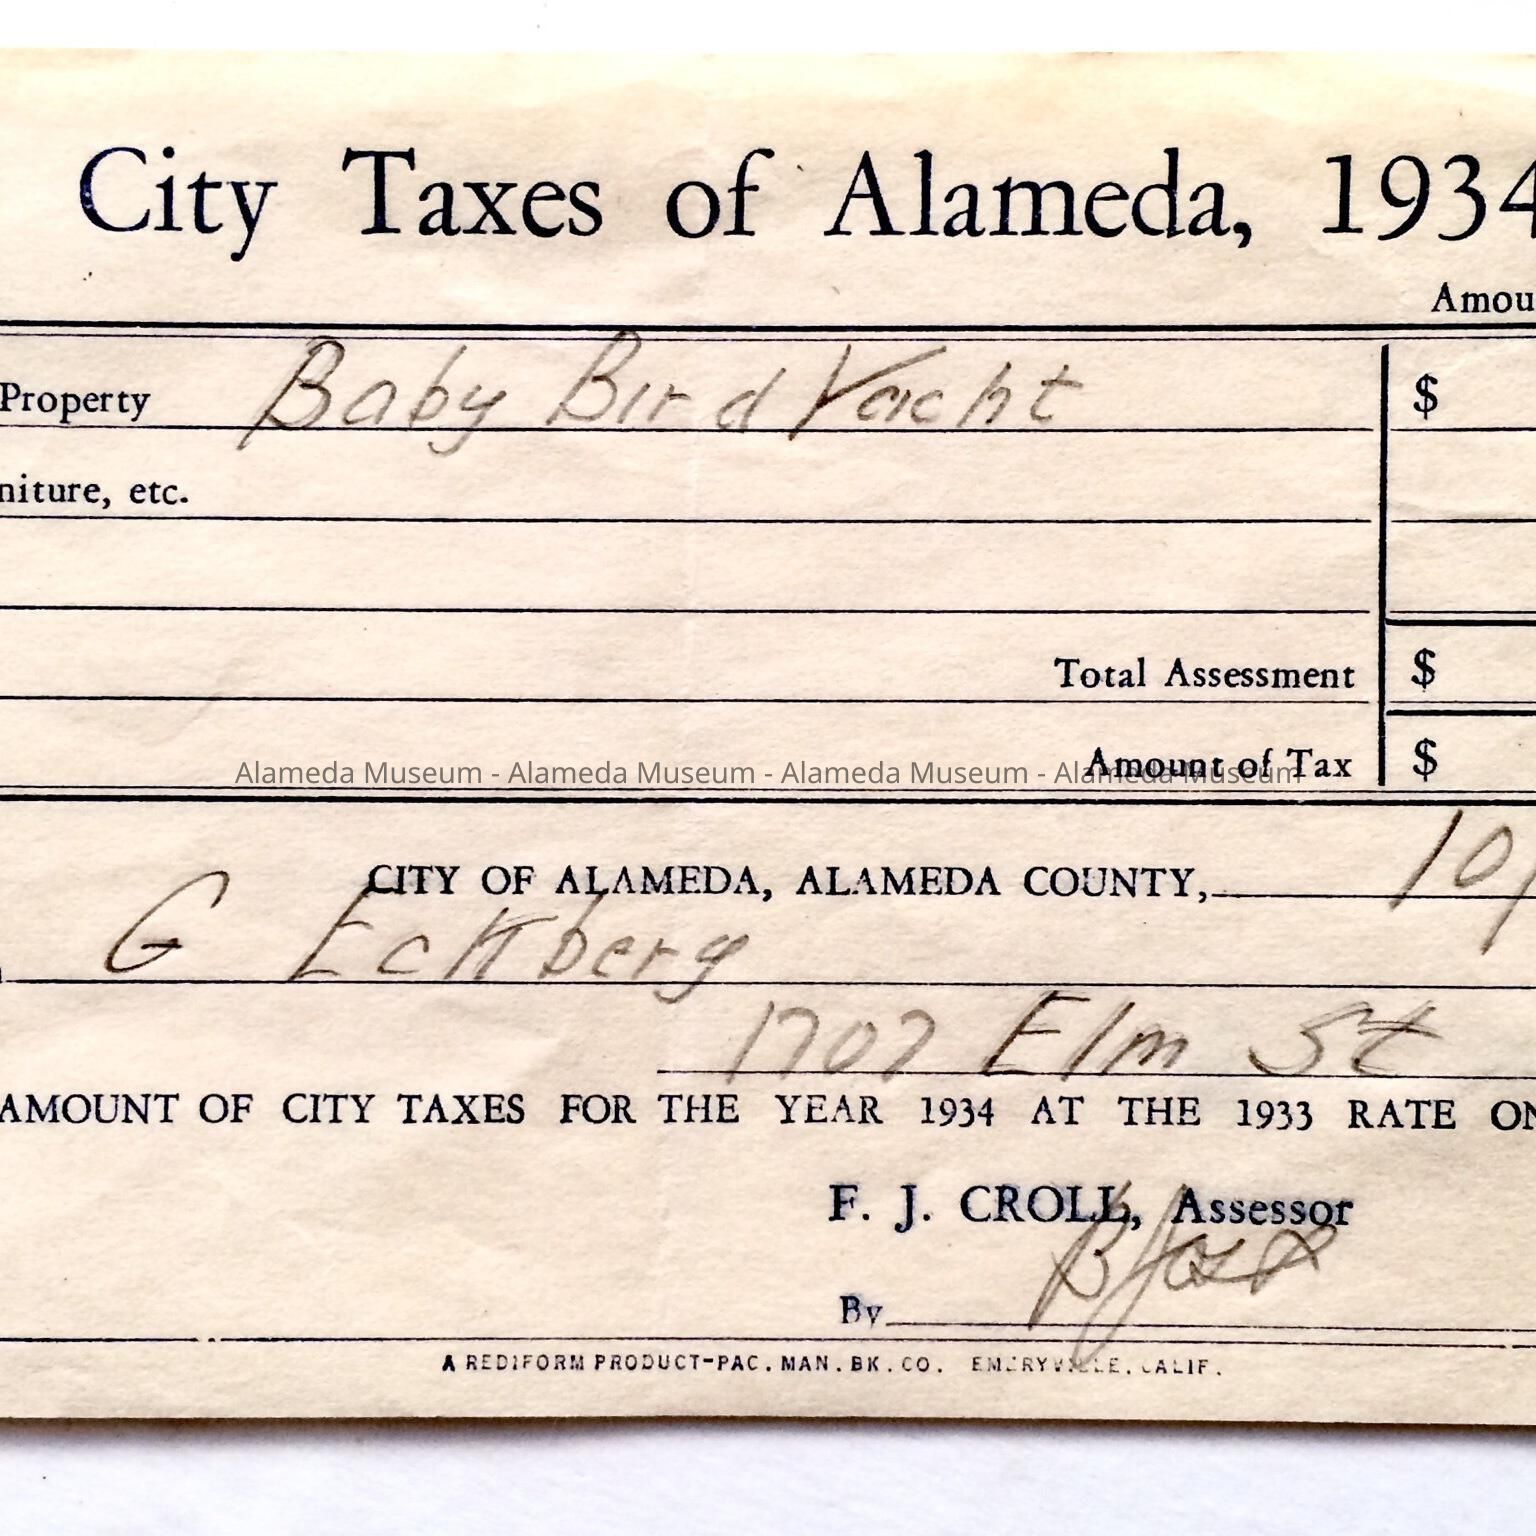 City Taxes of Alameda, 1934
Amou
Property Baby Bird Yacht $
niture, etc.
Total Assessment $
Amount of Tax $
Alameda Museum - Alameda Museum - Alameda Museum - Alameda Museum
CITY OF ALAMEDA, ALAMEDA COUNTY, 10/
G Eckberg
1707 Elm St
AMOUNT OF CITY TAXES FOR THE YEAR 1934 AT THE 1933 RATE ON
F. J. CROLL, Assessor
By
A REDIFORM PRODUCT-PAC. MAN. BK. CO. EMERYVILLE, CALIF.